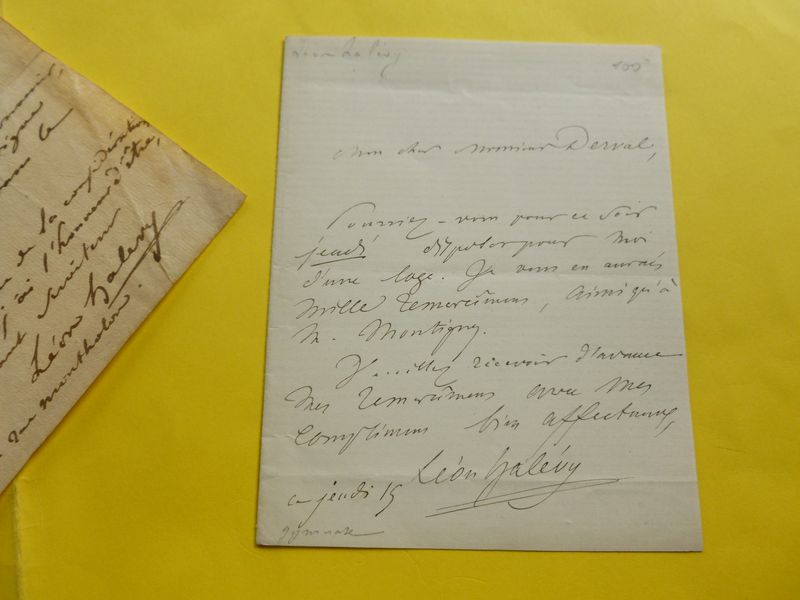 Léon Halévy
Mon cher Monsieur Derval,
Pourriez-vous pour ce soir
jeudi disposer pour moi
d'une loge. Je vous en aurais
mille remercîmens, ainsi qu'à
M. Montigny.
Veuillez recevoir d'avance
mes remercîmens avec mes
complimens bien affectueux,
Léon Halévy
ce jeudi 15
gymnase
de la considération
l'honneur d'être,
serviteur
Léon Halévy
rue Montholon.